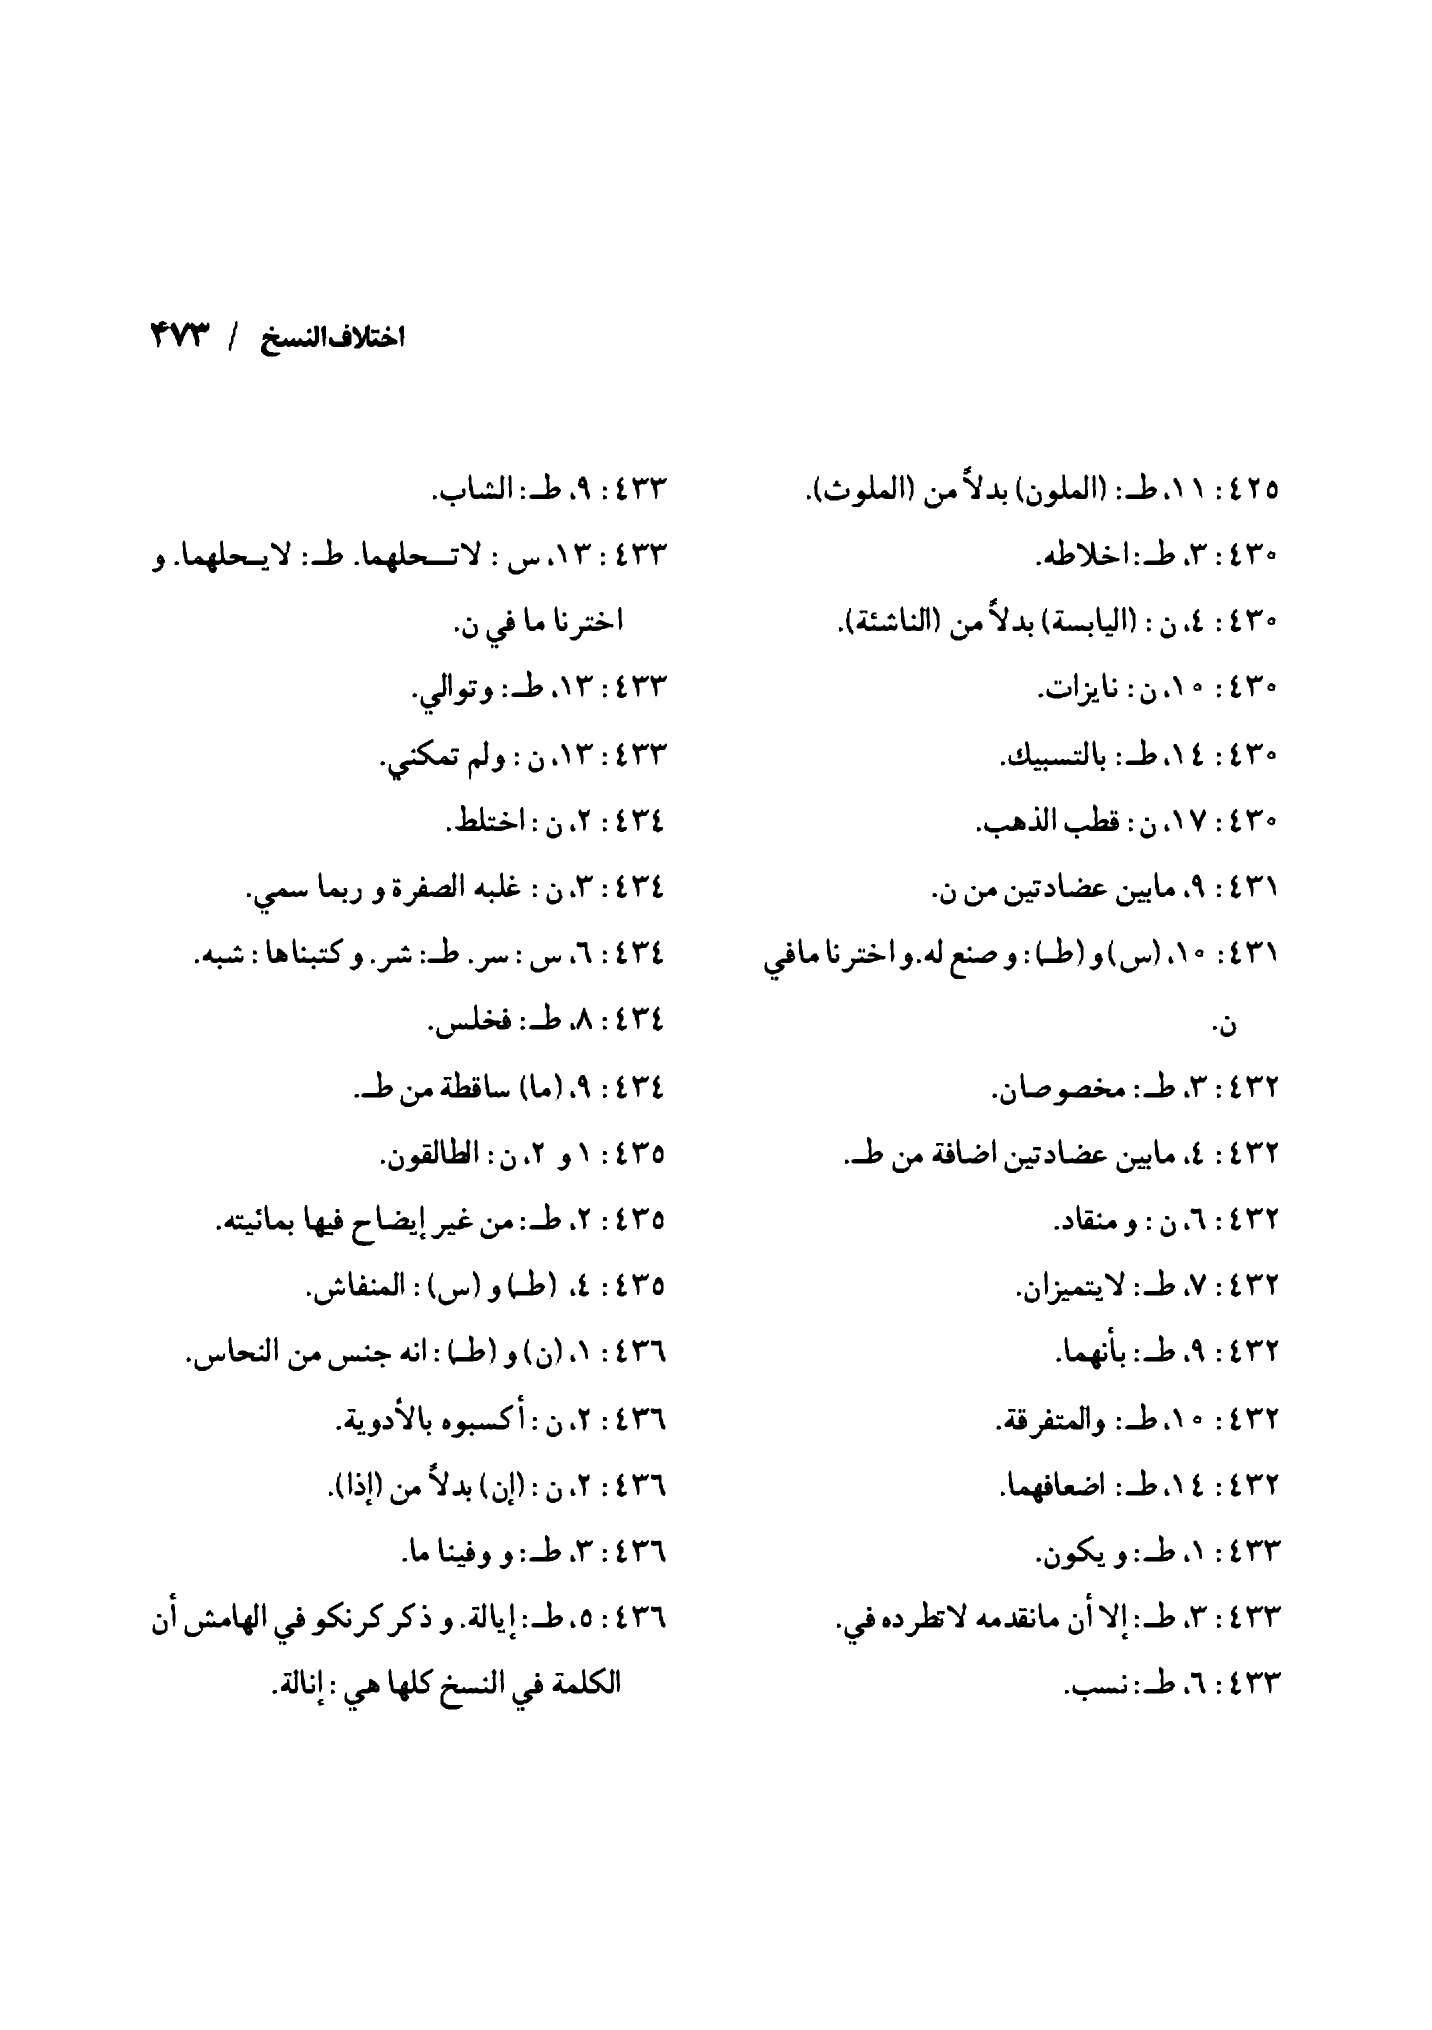 اختلاف النسخ / ۴۷۳
٤٢٥: ١١، طـ: (الملون) بدلاً من (الملوث).
٤٣٠: ٣، طـ: اخلاطه.
٤٣٠: ٤، ن: (اليابسة) بدلاً من (الناشئة).
٤٣٠: ١٠، ن: نايزات.
٤٣٠: ١٤، طـ: بالتسبيك.
٤٣٠: ١٧، ن: قطب الذهب.
٤٣١: ٩، مابين عضادتين من ن.
٤٣١: ١٠، (س) و (طـ): و صنع له. و اخترنا مافي
ن.
٤٣٢: ٣، طـ: مخصوصان.
٤٣٢: ٤، مابين عضادتين اضافة من طـ.
٤٣٢: ٦، ن: و منقاد.
٤٣٢: ٧، طـ: لايتميزان.
٤٣٢: ٩، طـ: بأنهما.
٤٣٢: ١٠، طـ: والمتفرقة.
٤٣٢: ١٤، طـ: اضعافهما.
٤٣٣: ١، طـ: و يكون.
٤٣٣: ٣، طـ: إلا أن مانقدمه لاتطرده في.
٤٣٣: ٦، طـ: نسب.
٤٣٣: ٩، طـ: الشاب.
٤٣٣: ١٣، س: لاتـحلهما. طـ: لايـحلهما. و
اخترنا ما في ن.
٤٣٣: ١٣، طـ: وتوالي.
٤٣٣: ١٣، ن: ولم تمكني.
٤٣٤: ٢، ن: اختلط.
٤٣٤: ٣، ن: غلبه الصفرة و ربما سمي.
٤٣٤: ٦، س: سر. طـ: شر. و كتبناها: شبه.
٤٣٤: ٨، طـ: فخلس.
٤٣٤: ٩، (ما) ساقطة من طـ.
٤٣٥: ١ و ٢، ن: الطالقون.
٤٣٥: ٢، طـ: من غير إيضاح فيها بمائيته.
٤٣٥: ٤، (طـ) و (س): المنفاش.
٤٣٦: ١، (ن) و (طـ): انه جنس من النحاس.
٤٣٦: ٢، ن: أكسبوه بالأدوية.
٤٣٦: ٢، ن: (إن) بدلاً من (إذا).
٤٣٦: ٣، طـ: و وفينا ما.
٤٣٦: ٥، طـ: إيالة. و ذكر كرنكو في الهامش أن
الكلمة في النسخ كلها هي: إنالة.